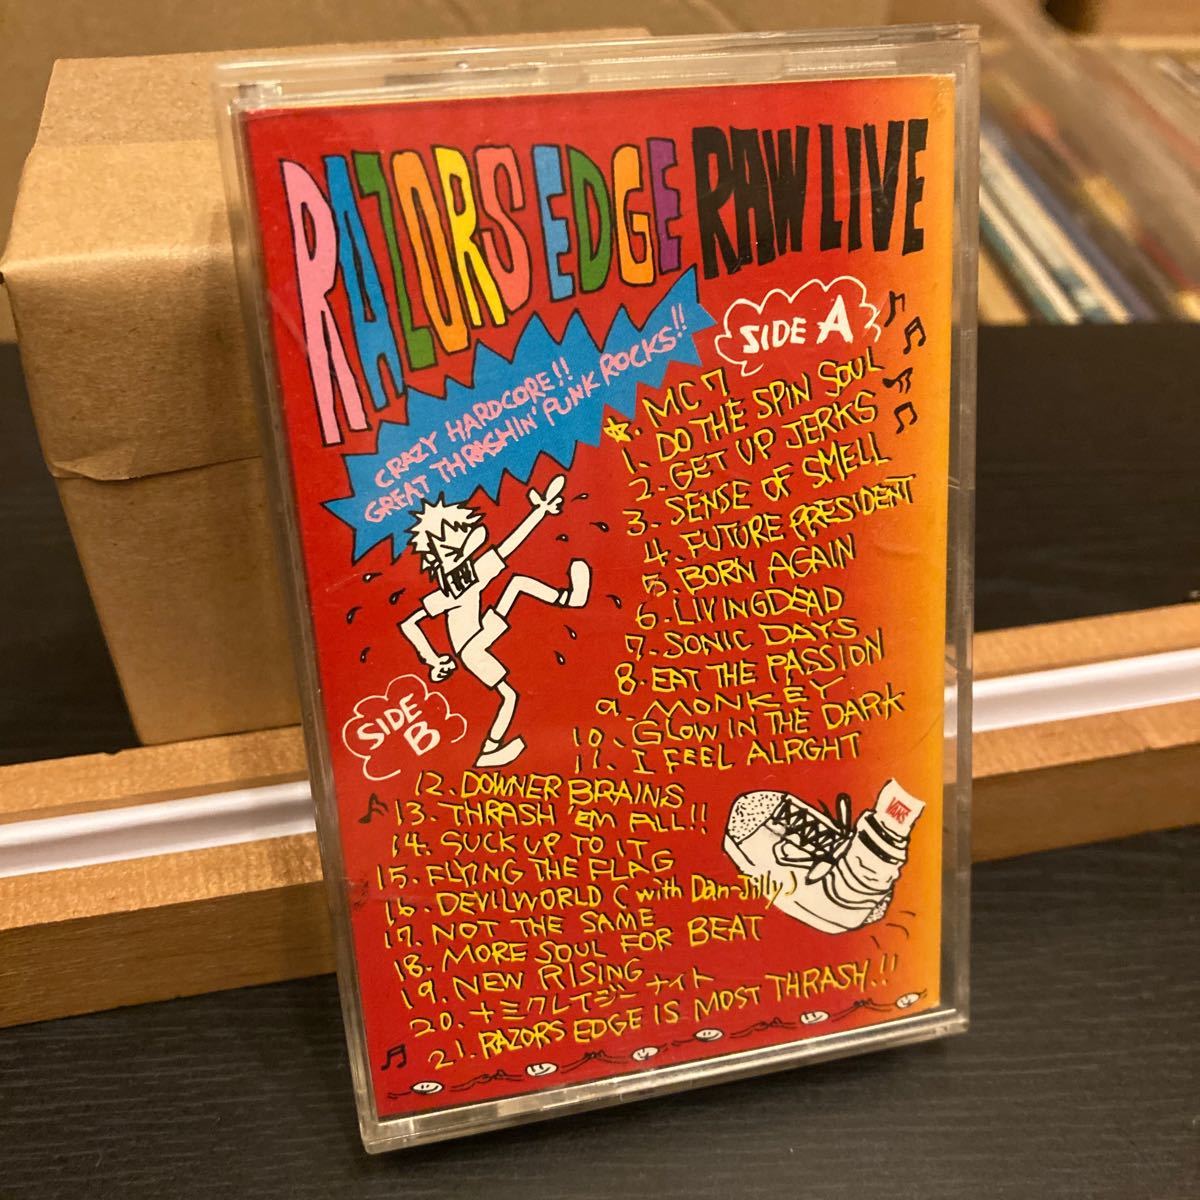 RAZORS EDGE RAW LIVE
CRAZY HARDCORE!!
GREAT THRASHIN' PUNK ROCKS!!
SIDE A
☆. MC 7
1. DO THE SPIN SOUL
2. GET UP JERKS
3. SENSE OF SMELL
4. FUTURE PRESIDENT
5. BORN AGAIN
6. LIVINGDEAD
7. SONIC DAYS
8. EAT THE PASSION
9. MONKEY
10. GLOW IN THE DARK
11. I FEEL ALRGHT
SIDE B
12. DOWNER BRAINS
13. THRASH 'EM ALL!!
14. SUCK UP TO IT
15. FLYING THE FLAG
16. DEVILWORLD (with Dan-Jilly)
17. NOT THE SAME
18. MORE SOUL FOR BEAT
19. NEW RISING
20. ナミクレイジーナイト
21. RAZORS EDGE IS MOST THRASH!!
VANS